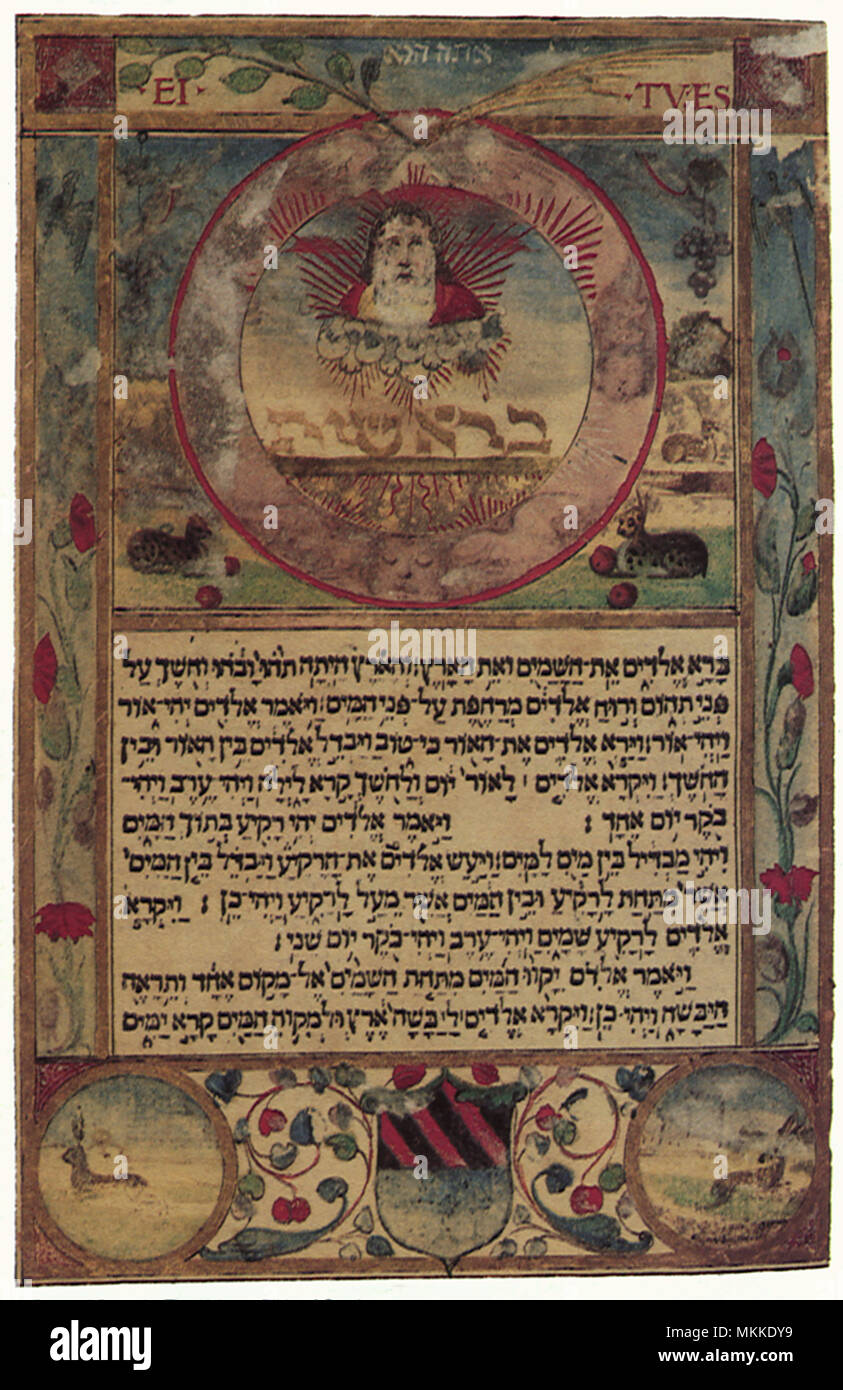 אתה הלא
·EI· ·TV·ES
בראשית
בָּרָא אֱלֹדִים אֵת־הַשָּׁמַיִם וְאֵת הָאָרֶץ׃ וְהָאָרֶץ הָיְתָה תֹהוּ וָבֹהוּ וְחֹשֶׁךְ עַל
פְּנֵי תְהוֹם וְרוּחַ אֱלֹדִים מְרַחֶפֶת עַל־פְּנֵי הַמָּיִם׃ וַיֹּאמֶר אֱלֹדִים יְהִי־אוֹר
וַיְהִי־אוֹר׃ וַיַּרְא אֱלֹדִים אֶת־הָאוֹר כִּי־טוֹב וַיַּבְדֵּל אֱלֹדִים בֵּין הָאוֹר וּבֵין
הַחֹשֶׁךְ׃ וַיִּקְרָא אֱלֹדִים ׀ לָאוֹר יוֹם וְלַחֹשֶׁךְ קָרָא לָיְלָה וַיְהִי־עֶרֶב וַיְהִי־
בֹקֶר יוֹם אֶחָד׃ וַיֹּאמֶר אֱלֹדִים יְהִי רָקִיעַ בְּתוֹךְ הַמָּיִם
וִיהִי מַבְדִּיל בֵּין מַיִם לָמָיִם׃ וַיַּעַשׂ אֱלֹדִים אֶת־הָרָקִיעַ וַיַּבְדֵּל בֵּין הַמַּיִם
אֲשֶׁר מִתַּחַת לָרָקִיעַ וּבֵין הַמַּיִם אֲשֶׁר מֵעַל לָרָקִיעַ וַיְהִי־כֵן׃ וַיִּקְרָא
אֱלֹדִים לָרָקִיעַ שָׁמָיִם וַיְהִי־עֶרֶב וַיְהִי־בֹקֶר יוֹם שֵׁנִי׃
וַיֹּאמֶר אֱלֹדִים יִקָּווּ הַמַּיִם מִתַּחַת הַשָּׁמַיִם אֶל־מָקוֹם אֶחָד וְתֵרָאֶה
הַיַּבָּשָׁה וַיְהִי־כֵן׃ וַיִּקְרָא אֱלֹדִים ׀ לַיַּבָּשָׁה אֶרֶץ וּלְמִקְוֵה הַמַּיִם קָרָא יַמִּים
alamy
Image ID: MKKDY9
www.alamy.com